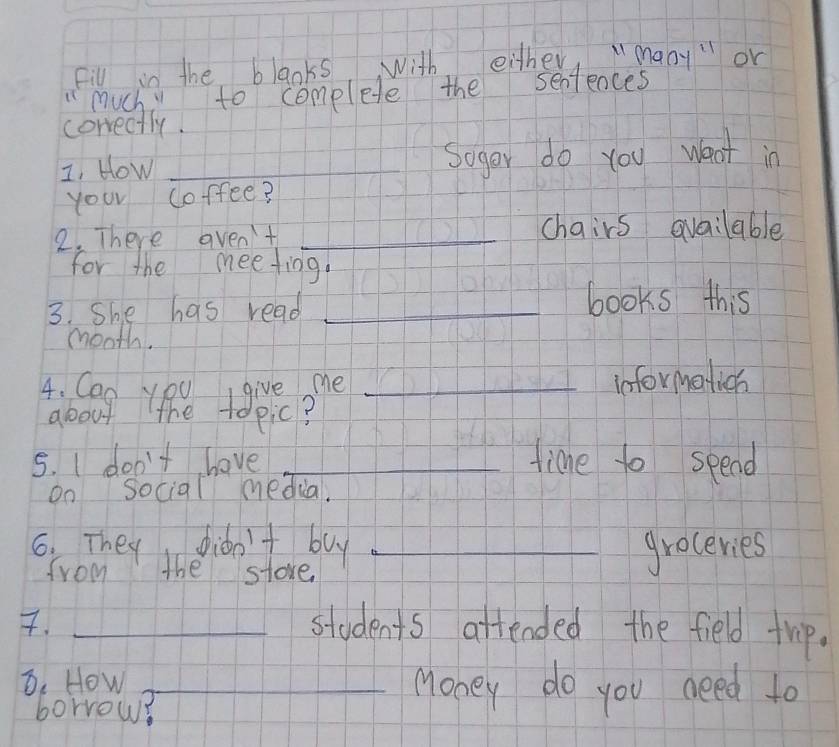 Fill in the blanks with either "many" or
"much" to complete the sentences
correctly.
1. How ____________ sugar do you want in
your coffee?
2. There aren't ____________ chairs available
for the meeting.
3. She has read ____________ books this
month.
4. Can you give me ____________ information
about the topic?
5. I don't have ____________ time to spend
on social media.
6. They didn't buy ____________ groceries
from the store.
7. ____________ students attended the field trip.
8. How ____________ money do you need to
borrow?